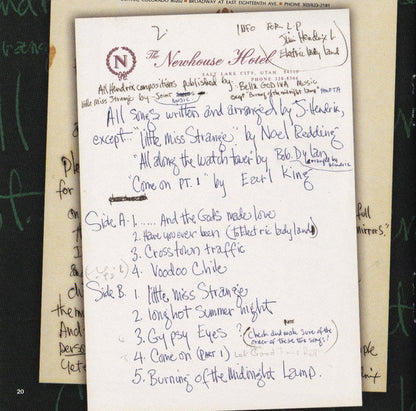 COLORADO 80202 • BROADWAY AT EAST EIGHTEENTH AVE. • PHONE 303/623-2181
2.
INFO FOR L.P
Jimi Hendrix L
Electric lady land
The Newhouse Hotel
SALT LAKE CITY, UTAH 84110
PHONE 328-8366
All Hendrix compositions published by - BELLA GODIVA music
little Miss Strange by Joint music except Burning of the midnight lamp
All songs written and arranged by J. Hendrix,
except "little, miss Strange" by Noel Redding
"All along the watch tower" by Bob. Dylan
arranged by Hendrix
"Come on PT. 1" by Earl King
Side A: 1...... And the Gods made love
2. Have you ever been (to Electric lady land)
3. Crosstown traffic
4. Voodoo Chile
Side B. 1. little, miss Strange
2. long hot Summer night
3. Gypsy Eyes ?
(Check and make sure of the
order of these two songs!)
4. Come on (PART 1) Let the Good Times Roll
5. Burning of the Midnight Lamp.
for
the m
And
perso
full
mirrors."
20